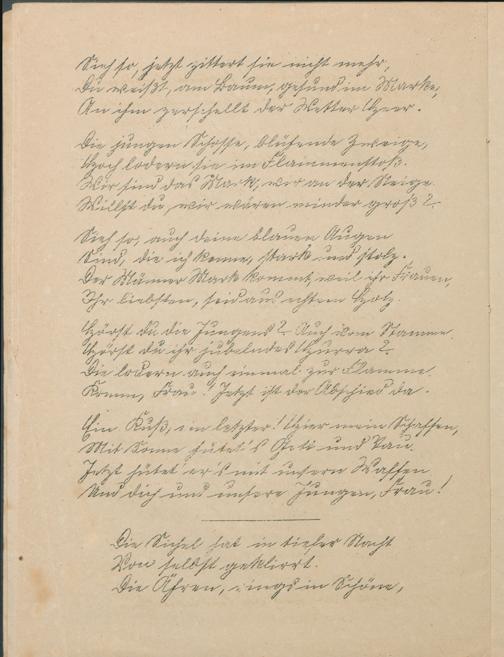 Sieh so, jetzt zittert sie nicht mehr,
Du weißt, am Baum, gesund im Marke,
An ihm zerschellt der Wetter Heer.
Die jungen Schosse, blühende Zweige,
Hoch lodern sie im Flammenstoß.
Wir sind das Mark, wer an der Neige
Willst du, wir wären minder groß?
Sieh so, auch deine blauen Augen
Sind, die ich kenne, stark und stolz.
Der Männer Mark kommt, weil ihr Frauen,
Ihr liebsten, seid aus echtem Holz.
Hörst du die Jungens? Auch vom Stamme.
Hörst du ihr jubelndes Hurra?
Die lodern auch einmal zur Flamme.
Komm, Frau! Jetzt ist der Abschied da.
Ein Kuß, ein letzter! Hier mein Schaffen,
Mit Sonne hütet's Gott und Tau.
Jetzt hütet er's mit unsern Waffen
Und dich und unsere Jungen, Frau!
Die Sichel hat in tiefer Nacht
Von selbst geklirrt.
Die Ähren, rings in Schöne,